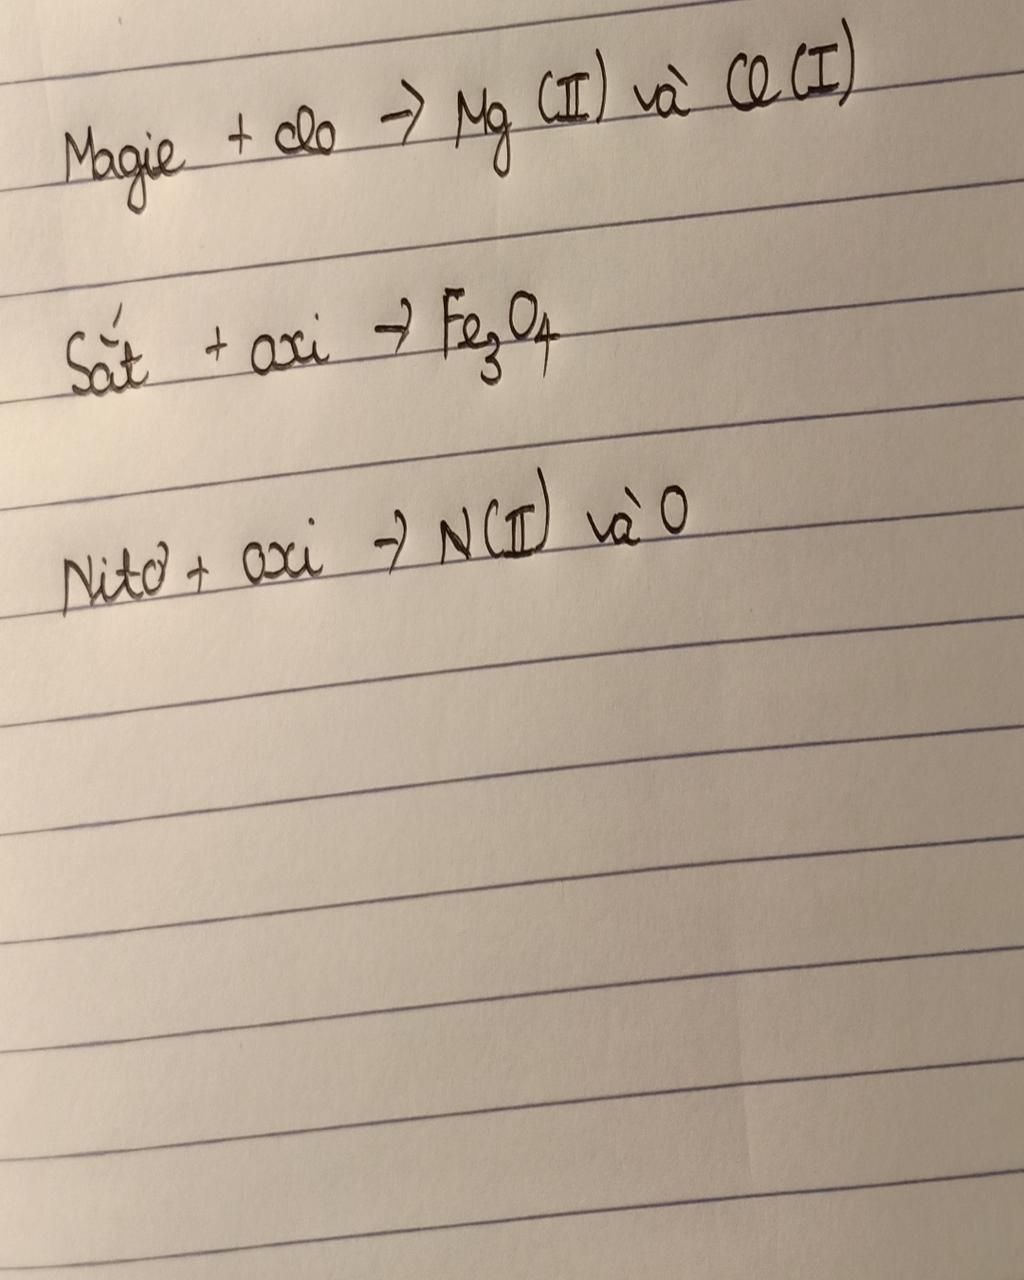 Magie + clo → Mg (II) và Cl (I)
Sắt + oxi → Fe₃O₄
Nitơ + oxi → N(II) và O